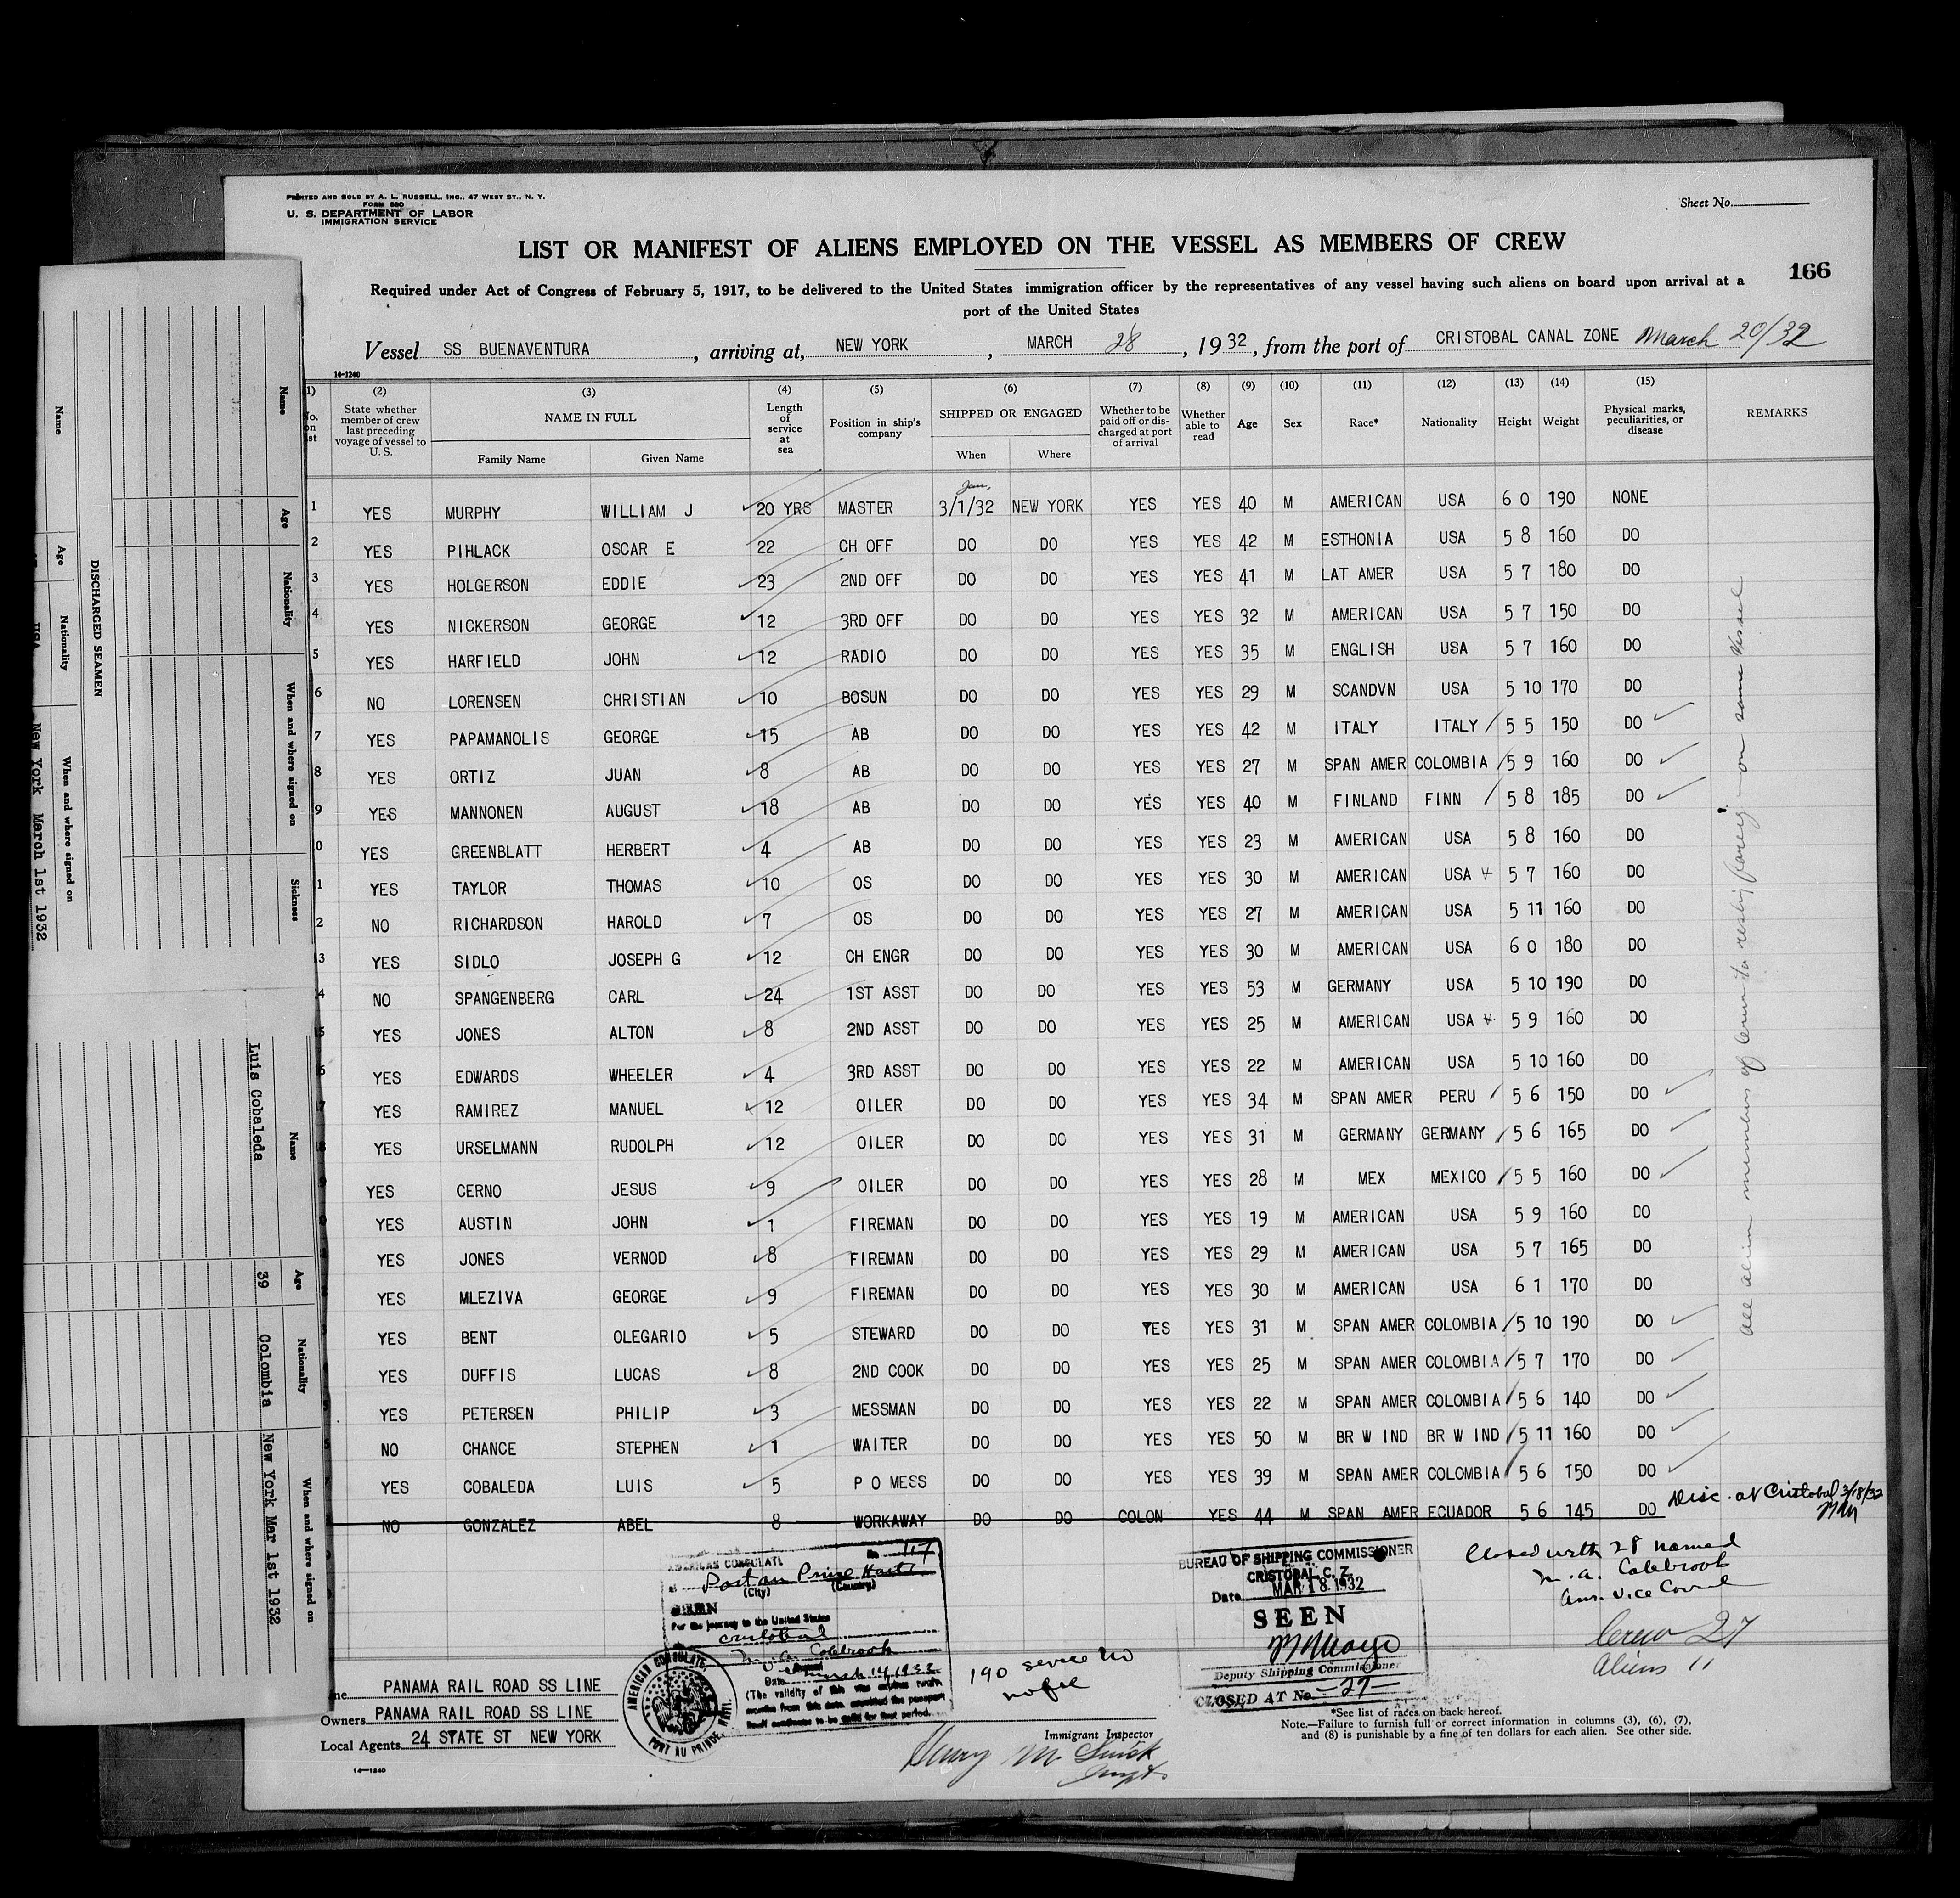 PRINTED AND SOLD BY A. L. RUSSELL, INC., 47 WEST ST., N. Y.
FORM 680
U. S. DEPARTMENT OF LABOR
IMMIGRATION SERVICE
Sheet No.
LIST OR MANIFEST OF ALIENS EMPLOYED ON THE VESSEL AS MEMBERS OF CREW
166
Required under Act of Congress of February 5, 1917, to be delivered to the United States immigration officer by the representatives of any vessel having such aliens on board upon arrival at a
port of the United States
Vessel SS BUENAVENTURA, arriving at, NEW YORK, MARCH 28, 1932, from the port of CRISTOBAL CANAL ZONE March 20/32
14-1240
(1) (2) (3) (4) (5) (6) (7) (8) (9) (10) (11) (12) (13) (14) (15)
State whether member of crew last preceding voyage of vessel to U. S. NAME IN FULL Length of service at sea Position in ship's company SHIPPED OR ENGAGED Whether to be paid off or discharged at port of arrival Whether able to read Age Sex Race* Nationality Height Weight Physical marks, peculiarities, or disease REMARKS
Family Name Given Name When Where
Jan,
1 YES MURPHY WILLIAM J 20 YRS MASTER 3/1/32 NEW YORK YES YES 40 M AMERICAN USA 6 0 190 NONE
2 YES PIHLACK OSCAR E 22 CH OFF DO DO YES YES 42 M ESTHONIA USA 5 8 160 DO
3 YES HOLGERSON EDDIE 23 2ND OFF DO DO YES YES 41 M LAT AMER USA 5 7 180 DO
4 YES NICKERSON GEORGE 12 3RD OFF DO DO YES YES 32 M AMERICAN USA 5 7 150 DO
5 YES HARFIELD JOHN 12 RADIO DO DO YES YES 35 M ENGLISH USA 5 7 160 DO
6 NO LORENSEN CHRISTIAN 10 BOSUN DO DO YES YES 29 M SCANDVN USA 5 10 170 DO
7 YES PAPAMANOLIS GEORGE 15 AB DO DO YES YES 42 M ITALY ITALY 5 5 150 DO
8 YES ORTIZ JUAN 8 AB DO DO YES YES 27 M SPAN AMER COLOMBIA 5 9 160 DO
9 YES MANNONEN AUGUST 18 AB DO DO YES YES 40 M FINLAND FINN 5 8 185 DO
0 YES GREENBLATT HERBERT 4 AB DO DO YES YES 23 M AMERICAN USA 5 8 160 DO
1 YES TAYLOR THOMAS 10 OS DO DO YES YES 30 M AMERICAN USA 5 7 160 DO
2 NO RICHARDSON HAROLD 7 OS DO DO YES YES 27 M AMERICAN USA 5 11 160 DO
3 YES SIDLO JOSEPH G 12 CH ENGR DO DO YES YES 30 M AMERICAN USA 6 0 180 DO
4 NO SPANGENBERG CARL 24 1ST ASST DO DO YES YES 53 M GERMANY USA 5 10 190 DO
5 YES JONES ALTON 8 2ND ASST DO DO YES YES 25 M AMERICAN USA 5 9 160 DO
6 YES EDWARDS WHEELER 4 3RD ASST DO DO YES YES 22 M AMERICAN USA 5 10 160 DO
7 YES RAMIREZ MANUEL 12 OILER DO DO YES YES 34 M SPAN AMER PERU 5 6 150 DO
8 YES URSELMANN RUDOLPH 12 OILER DO DO YES YES 31 M GERMANY GERMANY 5 6 165 DO
YES CERNO JESUS 9 OILER DO DO YES YES 28 M MEX MEXICO 5 5 160 DO
YES AUSTIN JOHN 1 FIREMAN DO DO YES YES 19 M AMERICAN USA 5 9 160 DO
YES JONES VERNOD 8 FIREMAN DO DO YES YES 29 M AMERICAN USA 5 7 165 DO
YES MLEZIVA GEORGE 9 FIREMAN DO DO YES YES 30 M AMERICAN USA 6 1 170 DO
YES BENT OLEGARIO 5 STEWARD DO DO YES YES 31 M SPAN AMER COLOMBIA 5 10 190 DO
YES DUFFIS LUCAS 8 2ND COOK DO DO YES YES 25 M SPAN AMER COLOMBIA 5 7 170 DO
YES PETERSEN PHILIP 3 MESSMAN DO DO YES YES 22 M SPAN AMER COLOMBIA 5 6 140 DO
NO CHANCE STEPHEN 1 WAITER DO DO YES YES 50 M BR W IND BR W IND 5 11 160 DO
YES COBALEDA LUIS 5 P O MESS DO DO YES YES 39 M SPAN AMER COLOMBIA 5 6 150 DO
NO GONZALEZ ABEL 8 WORKAWAY DO DO COLON YES 44 M SPAN AMER ECUADOR 5 6 145 DO Disc. at Cristobal 3/18/32
All alien members of Crew to reship foreign on same vessel
AMERICAN CONSULATE
No 117
at Port au Prince Haiti
(City) (Country)
SEEN
For the journey to the United States
cristobal
M. A. Colebrook
Date March 14, 1932
(The validity of this visa expires twelve months from this date, provided the passport
AMERICAN CONSULATE, PORT AU PRINCE, HAITI.
190 serve no
BUREAU OF SHIPPING COMMISSIONER
CRISTOBAL C. Z.
Date MAR 18 1932
SEEN
Deputy Shipping Commissioner
CLOSED AT No. -27-
Closed with 28 named
M. A. Colebrook
Am. Vice Consul
Crew 27
Aliens 11
Line PANAMA RAIL ROAD SS LINE
Owners PANAMA RAIL ROAD SS LINE
Local Agents 24 STATE ST NEW YORK
14-1240
Immigrant Inspector
*See list of races on back hereof.
Note.—Failure to furnish full or correct information in columns (3), (6), (7),
and (8) is punishable by a fine of ten dollars for each alien. See other side.
DISCHARGED SEAMEN
Name Age Nationality When and where signed on Sickness
Name Age Nationality When and where signed on
USA New York March 1st 1932
Name Age Nationality When and where signed on
Luis Cobaleda 39 Colombia New York Mar 1st 1932